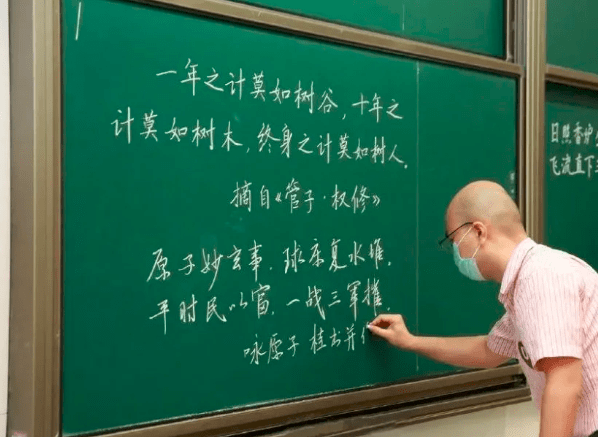 一年之计莫如树谷，十年之
计莫如树木，终身之计莫如树人。
摘自《管子·权修》
原子妙玄事，球床复水堆，
平时民以富，一战三军摧，
咏原子 桂书并
日照香炉
飞流直下三